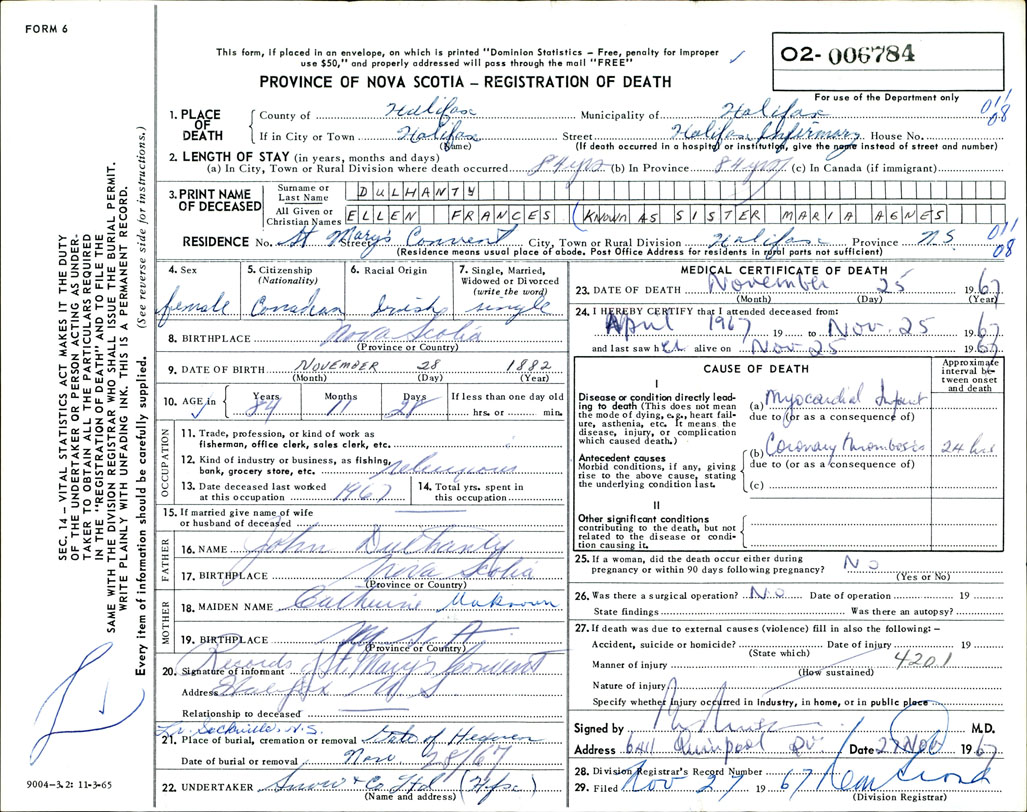 FORM 6
This form, if placed in an envelope, on which is printed "Dominion Statistics – Free, penalty for improper
use $50," and properly addressed will pass through the mail "FREE"
PROVINCE OF NOVA SCOTIA – REGISTRATION OF DEATH
02- 006784
For use of the Department only
011/08
1. PLACE OF DEATH
County of Halifax Municipality of Halifax
If in City or Town Halifax Street Halifax Infirmary House No.
(Name) (If death occurred in a hospital or institution, give the name instead of street and number)
2. LENGTH OF STAY (in years, months and days)
(a) In City, Town or Rural Division where death occurred 84 yrs (b) In Province 84 yrs (c) In Canada (if immigrant)
3. PRINT NAME OF DECEASED
Surname or Last Name DULHANTY
All Given or Christian Names ELLEN FRANCES (KNOWN AS SISTER MARIA AGNES
RESIDENCE No. St Mary's Convent Street City, Town or Rural Division Halifax Province N.S. 011/08
(Residence means usual place of abode. Post Office Address for residents in rural parts not sufficient)
4. Sex
female
5. Citizenship
(Nationality)
Canadian
6. Racial Origin
Irish
7. Single, Married,
Widowed or Divorced
(write the word)
single
8. BIRTHPLACE Nova Scotia
(Province or Country)
9. DATE OF BIRTH NOVEMBER 28 1882
(Month) (Day) (Year)
10. AGE in
Years Months Days If less than one day old
84 11 28 hrs. or min.
OCCUPATION
11. Trade, profession, or kind of work as
fisherman, office clerk, sales clerk, etc.
12. Kind of industry or business, as fishing,
bank, grocery store, etc. religious
13. Date deceased last worked
at this occupation 1967
14. Total yrs. spent in
this occupation
15. If married give name of wife
or husband of deceased
FATHER
16. NAME John Dulhanty
17. BIRTHPLACE Nova Scotia
(Province or Country)
MOTHER
18. MAIDEN NAME Catherine Unknown
19. BIRTHPLACE
(Province or Country)
20. Signature of informant Records St. Mary's Convent
Address Halifax N S
Relationship to deceased
Lr. Sackville, N.S.
21. Place of burial, cremation or removal Gate of Heaven
Date of burial or removal Nov. 28/67
22. UNDERTAKER Snow & Co. Ltd (Hfx)
(Name and address)
MEDICAL CERTIFICATE OF DEATH
23. DATE OF DEATH November 25 1967
(Month) (Day) (Year)
24. I HEREBY CERTIFY that I attended deceased from:
April 1967 19 to Nov. 25 1967
and last saw her alive on Nov 25 1967
CAUSE OF DEATH
Approximate
interval be-
tween onset
and death
I
Disease or condition directly lead-
ing to death (This does not mean
the mode of dying, e.g., heart fail-
ure, asthenia, etc. It means the
disease, injury, or complication
which caused death.)
(a) Myocardial Infarct
due to (or as a consequence of)
Antecedent causes
Morbid conditions, if any, giving
rise to the above cause, stating
the underlying condition last.
(b) Coronary thrombosis 24 hrs
due to (or as a consequence of)
(c)
II
Other significant conditions
contributing to the death, but not
related to the disease or condi-
tion causing it.
25. If a woman, did the death occur either during
pregnancy or within 90 days following pregnancy? No
(Yes or No)
26. Was there a surgical operation? No Date of operation 19
State findings Was there an autopsy?
27. If death was due to external causes (violence) fill in also the following: –
Accident, suicide or homicide? Date of injury 19
(State which)
Manner of injury 4201
(How sustained)
Nature of injury
Specify whether injury occurred in industry, in home, or in public place
Signed by M.D.
Address 6411 Quinpool Rd. Date 27 Nov 1967
28. Division Registrar's Record Number
29. Filed Nov 27 1967
(Division Registrar)
SEC. 14 – VITAL STATISTICS ACT MAKES IT THE DUTY
OF THE UNDERTAKER OR PERSON ACTING AS UNDER-
TAKER TO OBTAIN ALL THE PARTICULARS REQUIRED
IN THE "REGISTRATION OF DEATH" AND TO FILE THE
SAME WITH THE DIVISION REGISTRAR WHO SHALL ISSUE THE BURIAL PERMIT.
WRITE PLAINLY WITH UNFADING INK. THIS IS A PERMANENT RECORD.
Every item of information should be carefully supplied. (See reverse side for instructions.)
9004-3.2: 11-3-65